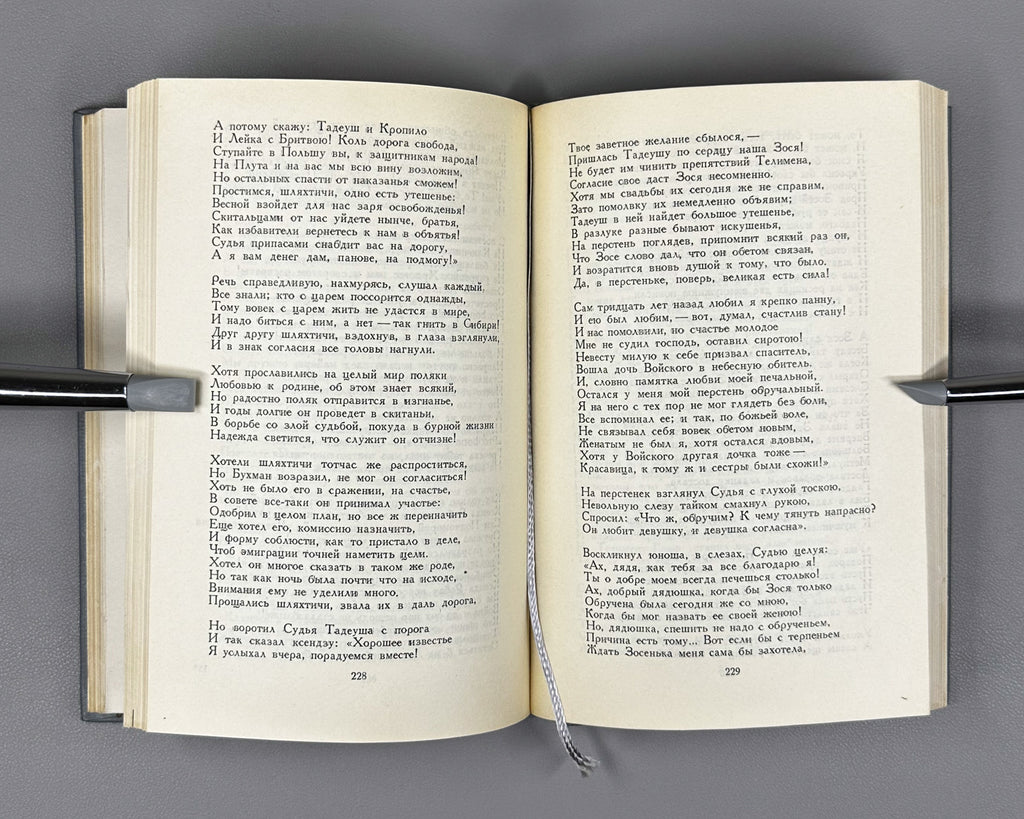 А потому скажу: Тадеуш и Кропило
И Лейка с Бритвою! Коль дорога свобода,
Ступайте в Польшу вы, к защитникам народа!
На Плута и на вас мы всю вину возложим,
Но остальных спасти от наказанья сможем!
Простимся, шляхтичи, одно есть утешенье:
Весной взойдет для нас заря освобожденья!
Скитальцами от нас уйдете нынче, братья,
Как избавители вернетесь к нам в объятья!
Судья припасами снабдит вас на дорогу,
А я вам денег дам, панове, на подмогу!»

Речь справедливую, нахмурясь, слушал каждый,
Все знали; кто с царем поссорится однажды,
Тому вовек с царем жить не удастся в мире,
И надо биться с ним, а нет — так гнить в Сибири!
Друг другу шляхтичи, вздохнув, в глаза взглянули,
И в знак согласия все головы нагнули.

Хотя прославились на целый мир поляки
Любовью к родине, об этом знает всякий,
Но радостно поляк отправится в изгнанье,
И годы долгие он проведет в скитаньи,
В борьбе со злой судьбой, покуда в бурной жизни
Надежда светится, что служит он отчизне!

Хотели шляхтичи тотчас же распроститься,
Но Бухман возразил, не мог он согласиться!
Хоть не было его в сражении, на счастье,
В совете все-таки он принимал участье:
Одобрил в целом план, но все ж переиначить
Еще хотел его, комиссию назначить,
И форму соблюсти, как то пристало в деле,
Чтоб эмиграции точней наметить цели.
Хотел он многое сказать в таком же роде,
Но так как ночь была почти что на исходе,
Внимания ему не уделили много.
Прощались шляхтичи, звала их в даль дорога,

Но воротил Судья Тадеуша с порога
И так сказал ксендзу: «Хорошее известье
Я услыхал вчера, порадуемся вместе!
228
Твое заветное желание сбылося, —
Пришлась Тадеушу по сердцу наша Зося!
Не будет им чинить препятствий Телимена,
Согласие свое даст Зося несомненно.
Хотя мы свадьбы их сегодня же не справим,
Зато помолвку их немедленно объявим;
Тадеуш в ней найдет большое утешенье,
В разлуке разные бывают искушенья,
На перстень поглядев, припомнит всякий раз он,
Что Зосе слово дал, что он обетом связан,
И возвратится вновь душой к тому, что было.
Да, в перстеньке, поверь, великая есть сила!

Сам тридцать лет назад любил я крепко панну,
И ею был любим, — вот, думал, счастлив стану!
И нас помолвили, но счастье молодое
Мне не судил господь, оставил сиротою!
Невесту милую к себе призвал спаситель,
Вошла дочь Войского в небесную обитель.
И, словно памятка любви моей печальной,
Остался у меня мой перстень обручальный.
Я на него с тех пор не мог глядеть без боли,
Все вспоминал ее; и так, по божьей воле,
Не связывал себя вовек обетом новым,
Женатым не был я, хотя остался вдовым,
Хотя у Войского другая дочка тоже —
Красавица, к тому ж и сестры были схожи!»

На перстенек взглянул Судья с глухой тоскою,
Невольную слезу тайком смахнул рукою,
Спросил: «Что ж, обручим? К чему тянуть напрасно?
Он любит девушку, и девушка согласна».

Воскликнул юноша, в слезах, Судью целуя:
«Ах, дядя, как тебя за все благодарю я!
Ты о добре моем всегда печешься столько!
Ах, добрый дядюшка, когда бы Зося только
Обручена была сегодня же со мною,
Когда бы мог назвать ее своей женою!
Но, дядюшка, спешить не надо с обрученьем,
Причина есть тому... Вот если бы с терпеньем
Ждать Зосенька меня сама бы захотела,
229